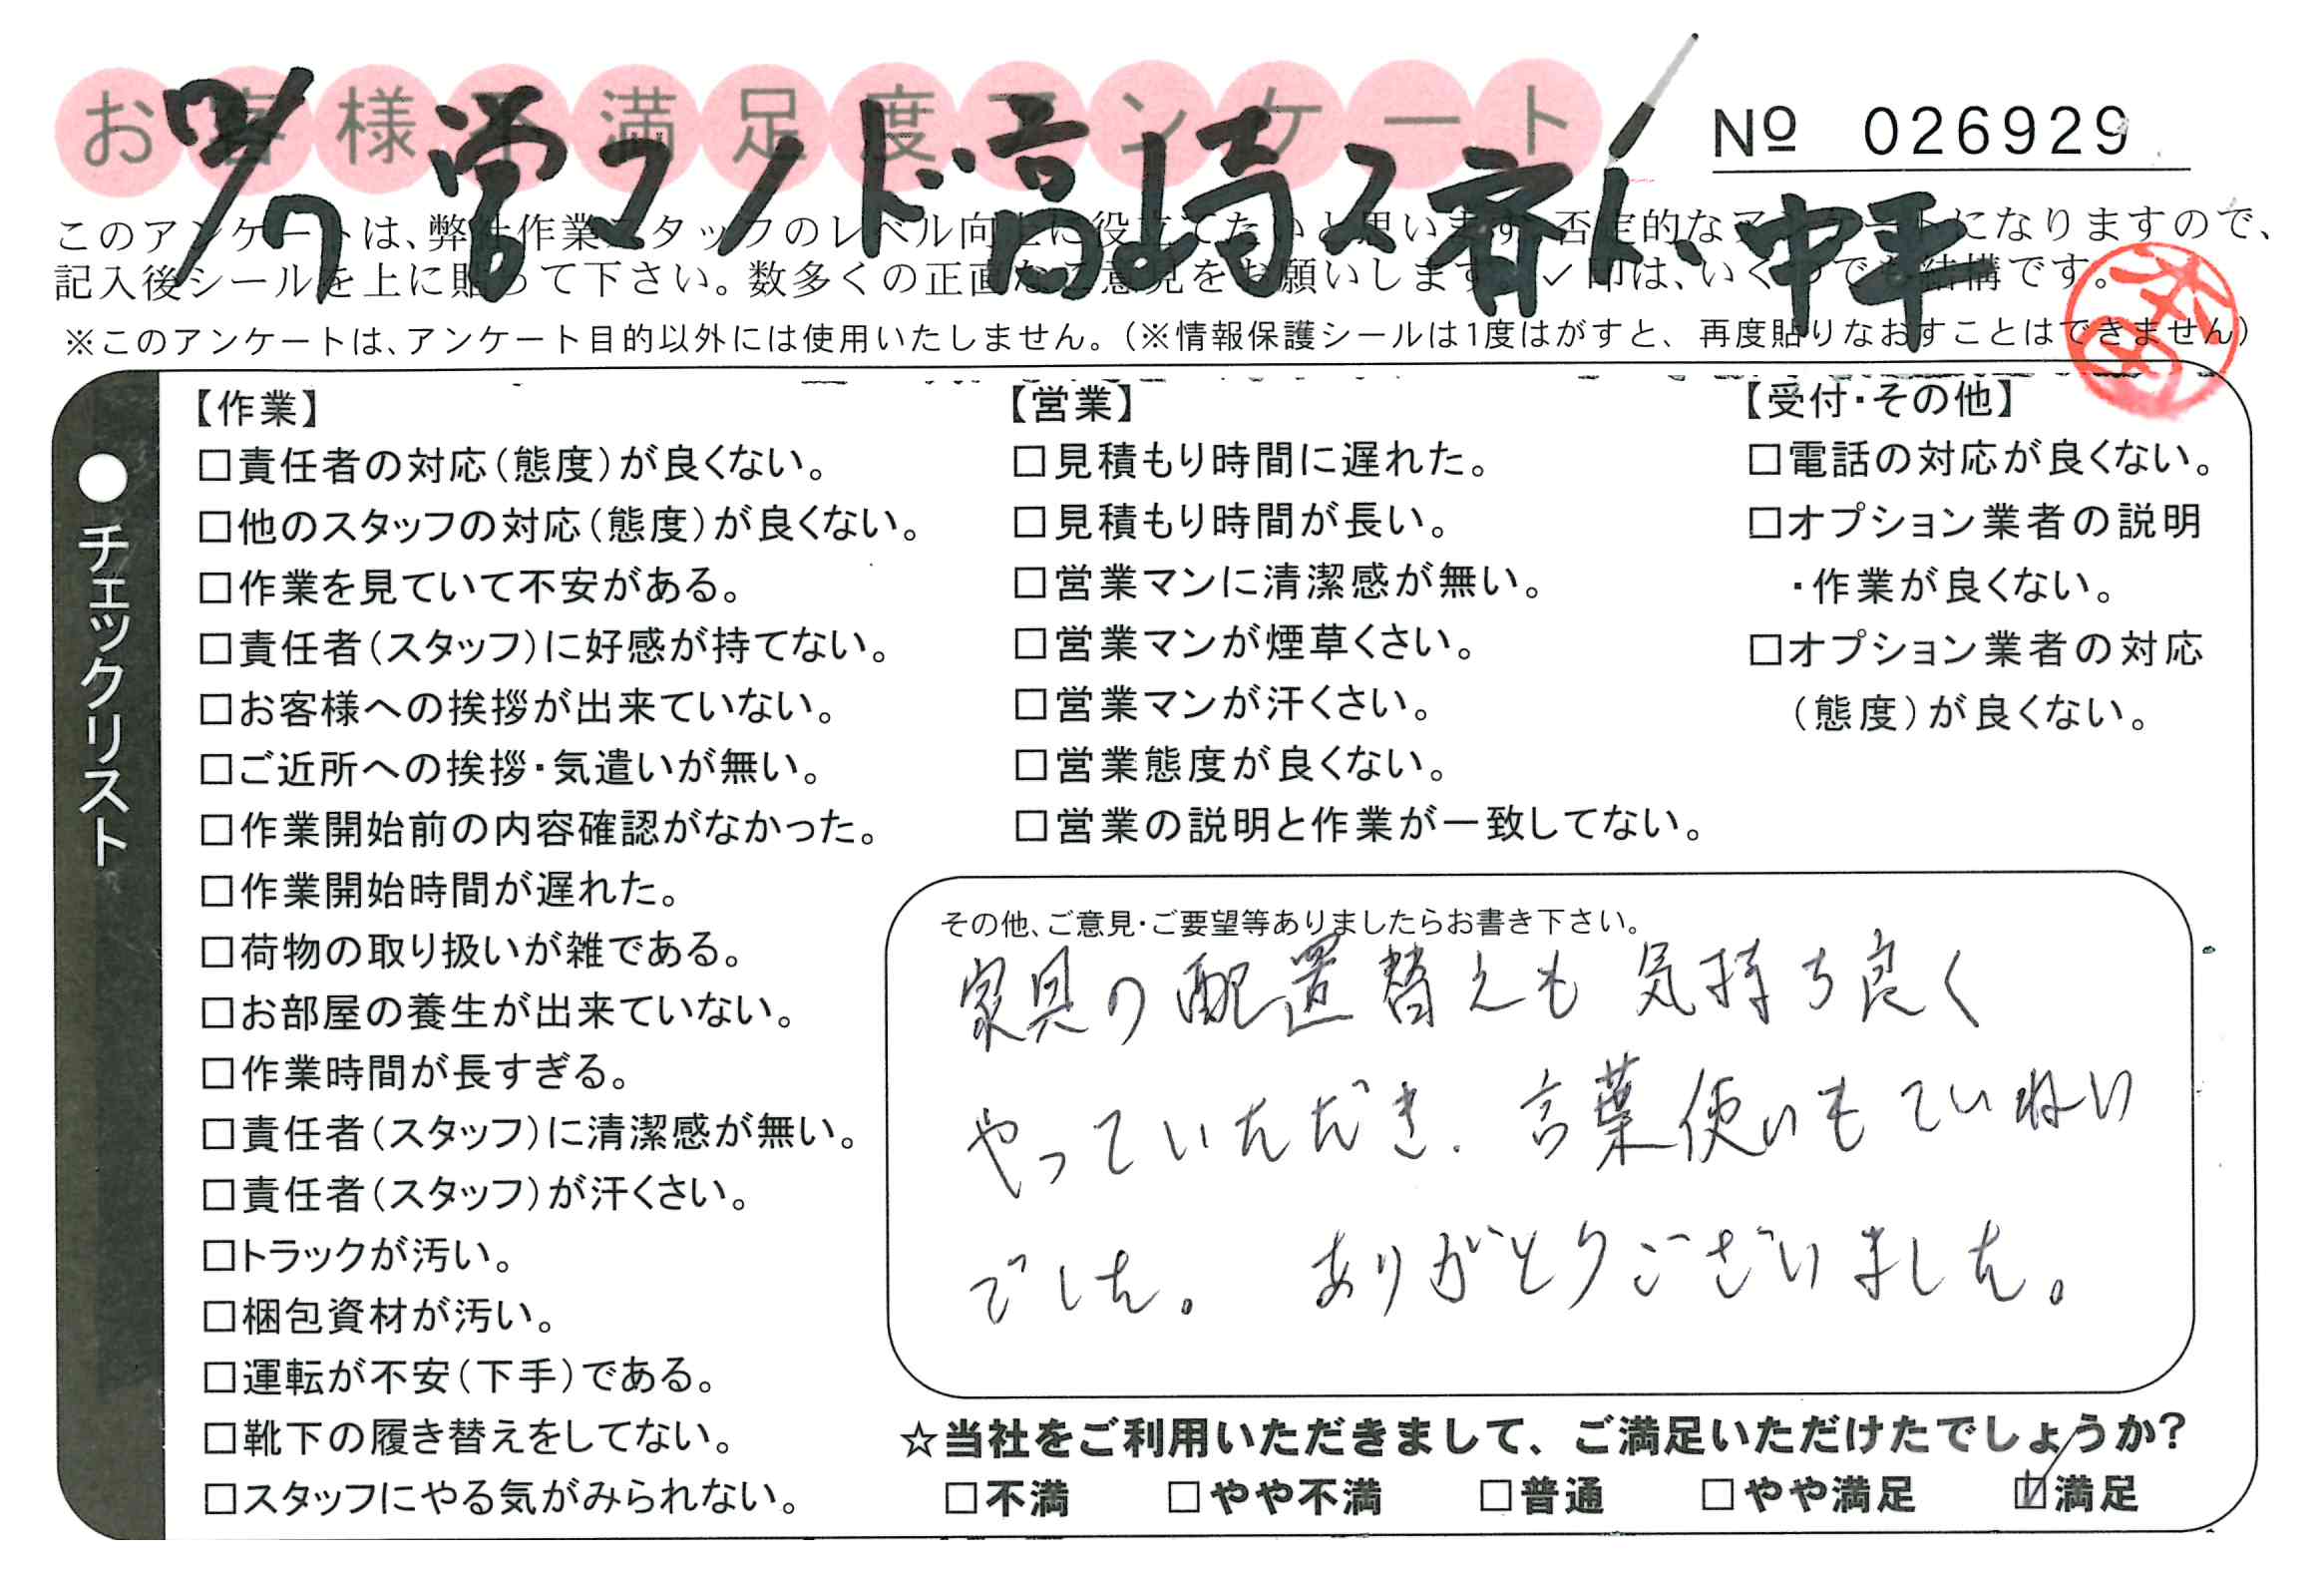 お客様不満足度アンケート
No 026929
このアンケートは、弊社作業スタッフのレベル向上に役立てたいと思います。否定的なアンケートになりますので、
記入後シールを上に貼って下さい。数多くの正直なご意見をお願いします。✓印は、いくつでも結構です。
※このアンケートは、アンケート目的以外には使用いたしません。（※情報保護シールは1度はがすと、再度貼りなおすことはできません）
●チェックリスト
【作業】
□責任者の対応（態度）が良くない。
□他のスタッフの対応（態度）が良くない。
□作業を見ていて不安がある。
□責任者（スタッフ）に好感が持てない。
□お客様への挨拶が出来ていない。
□ご近所への挨拶・気遣いが無い。
□作業開始前の内容確認がなかった。
□作業開始時間が遅れた。
□荷物の取り扱いが雑である。
□お部屋の養生が出来ていない。
□作業時間が長すぎる。
□責任者（スタッフ）に清潔感が無い。
□責任者（スタッフ）が汗くさい。
□トラックが汚い。
□梱包資材が汚い。
□運転が不安（下手）である。
□靴下の履き替えをしてない。
□スタッフにやる気がみられない。
【営業】
□見積もり時間に遅れた。
□見積もり時間が長い。
□営業マンに清潔感が無い。
□営業マンが煙草くさい。
□営業マンが汗くさい。
□営業態度が良くない。
□営業の説明と作業が一致してない。
【受付・その他】
□電話の対応が良くない。
□オプション業者の説明
・作業が良くない。
□オプション業者の対応
（態度）が良くない。
その他、ご意見・ご要望等ありましたらお書き下さい。
家具の配置替えも気持ち良く
やっていただき、言葉使いもていねい
でした。ありがとうございました。
☆当社をご利用いただきまして、ご満足いただけたでしょうか？
□不満 □やや不満 □普通 □やや満足 ☑満足